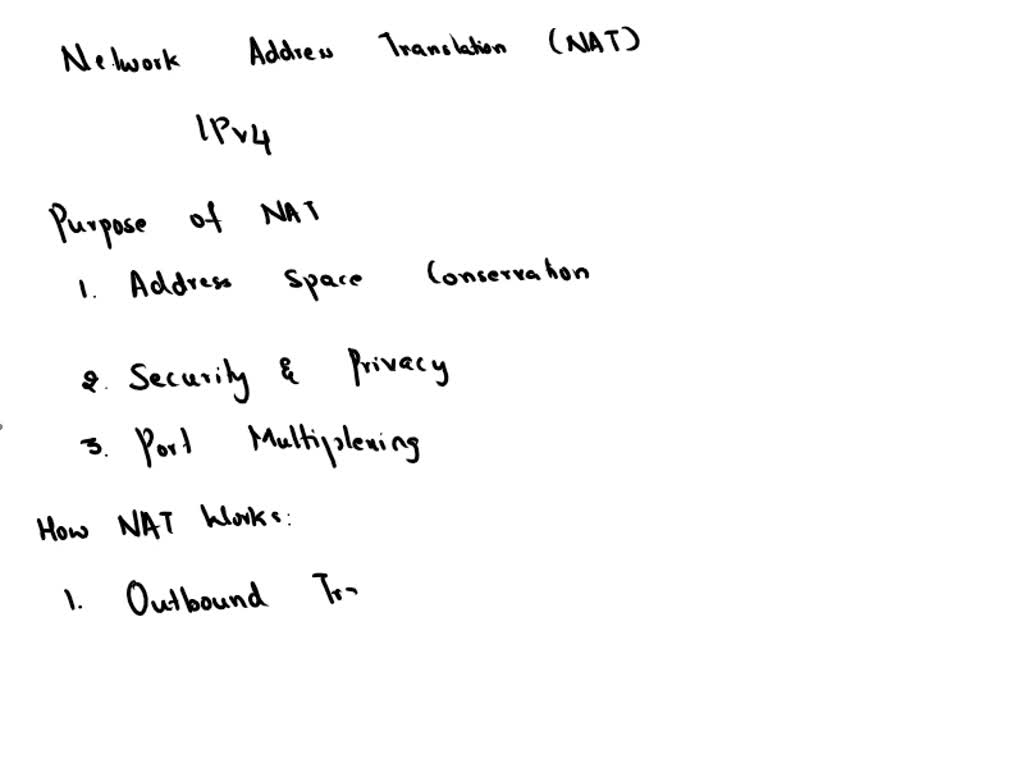 Network Address Translation (NAT)
IPv4
Purpose of NAT
1. Address Space Conservation
2. Security & Privacy
3. Port Multiplexing
How NAT Works:
1. Outbound Tr